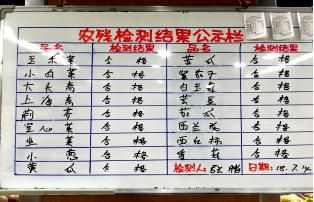 农残检测结果公示栏
品名 检测结果 品名 检测结果
玉米菜 合格 黄瓜 合格
小白菜 合格 紫茄子 合格
大长南 合格 白玉菇 合格
上海青 合格 芸豆 合格
合格 茄瓜 合格
空心菜 合格 西兰花 合格
韭菜 合格 西红柿 合格
小葱 合格 香菇 合格
黄瓜 合格 检测人: 张 日期: 18.7.14